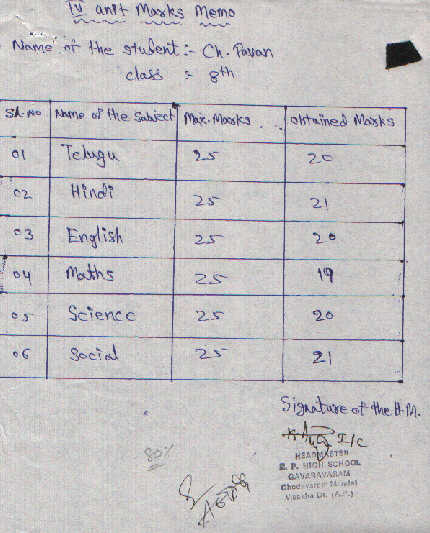 IV unit Marks Memo
Name of the student :- Ch. Pavan
class : 8th
Sl.No Name of the Subject Max. Marks obtained Marks
01 Telugu 25 20
02 Hindi 25 21
03 English 25 20
04 Maths 25 19
05 Science 25 20
06 Social 25 21
Signature of the H.M.
I/C
HEADMASTER
HIGH SCHOOL
80%